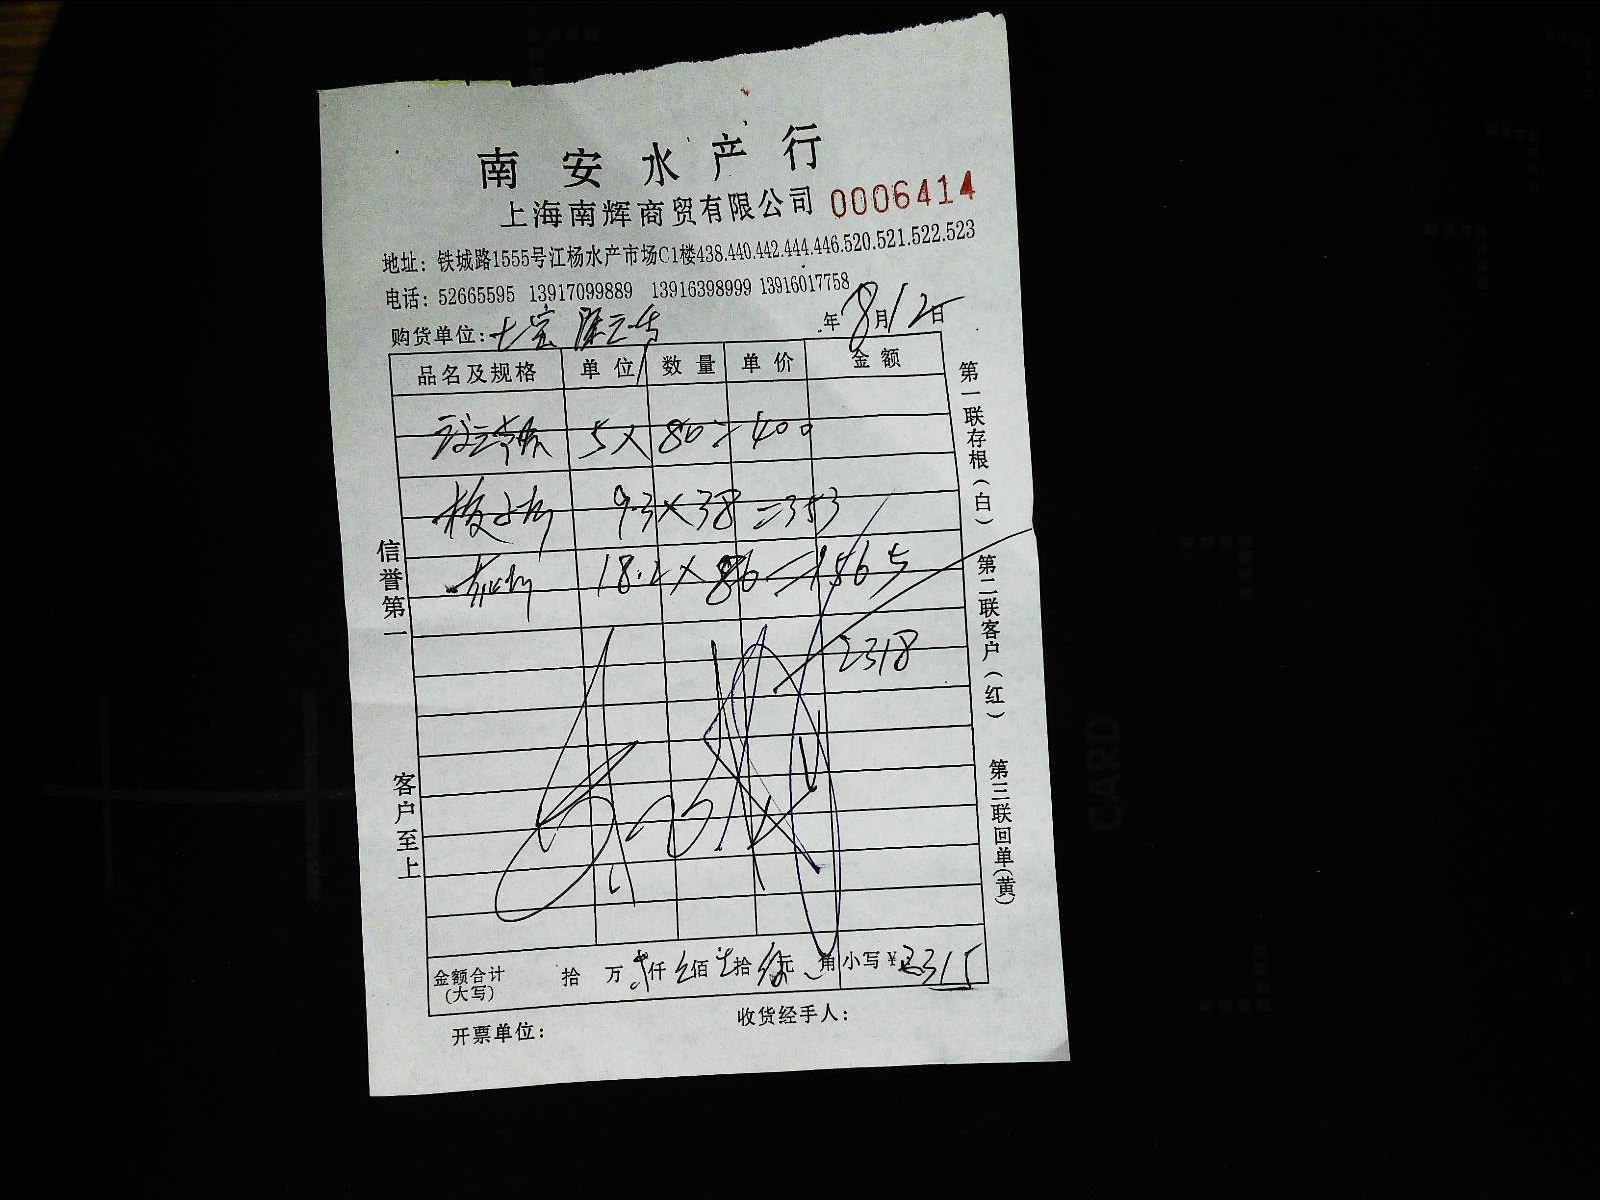 南安水产行
上海南辉商贸有限公司 0006414
地址：铁城路1555号江杨水产市场C1楼438.440.442.444.446.520.521.522.523
电话：52665595 13917099889 13916398999 13916017758
购货单位：七宝 年8月12日
品名及规格 单位 数量 单价 金额
5×80=400
9.3×38=353
18.2×86=1565
2318
金额合计(大写) 拾 万 仟 佰 拾 元 角 小写¥2315
开票单位： 收货经手人：
信誉第一
客户至上
第一联存根(白)
第二联客户(红)
第三联回单(黄)
CARD